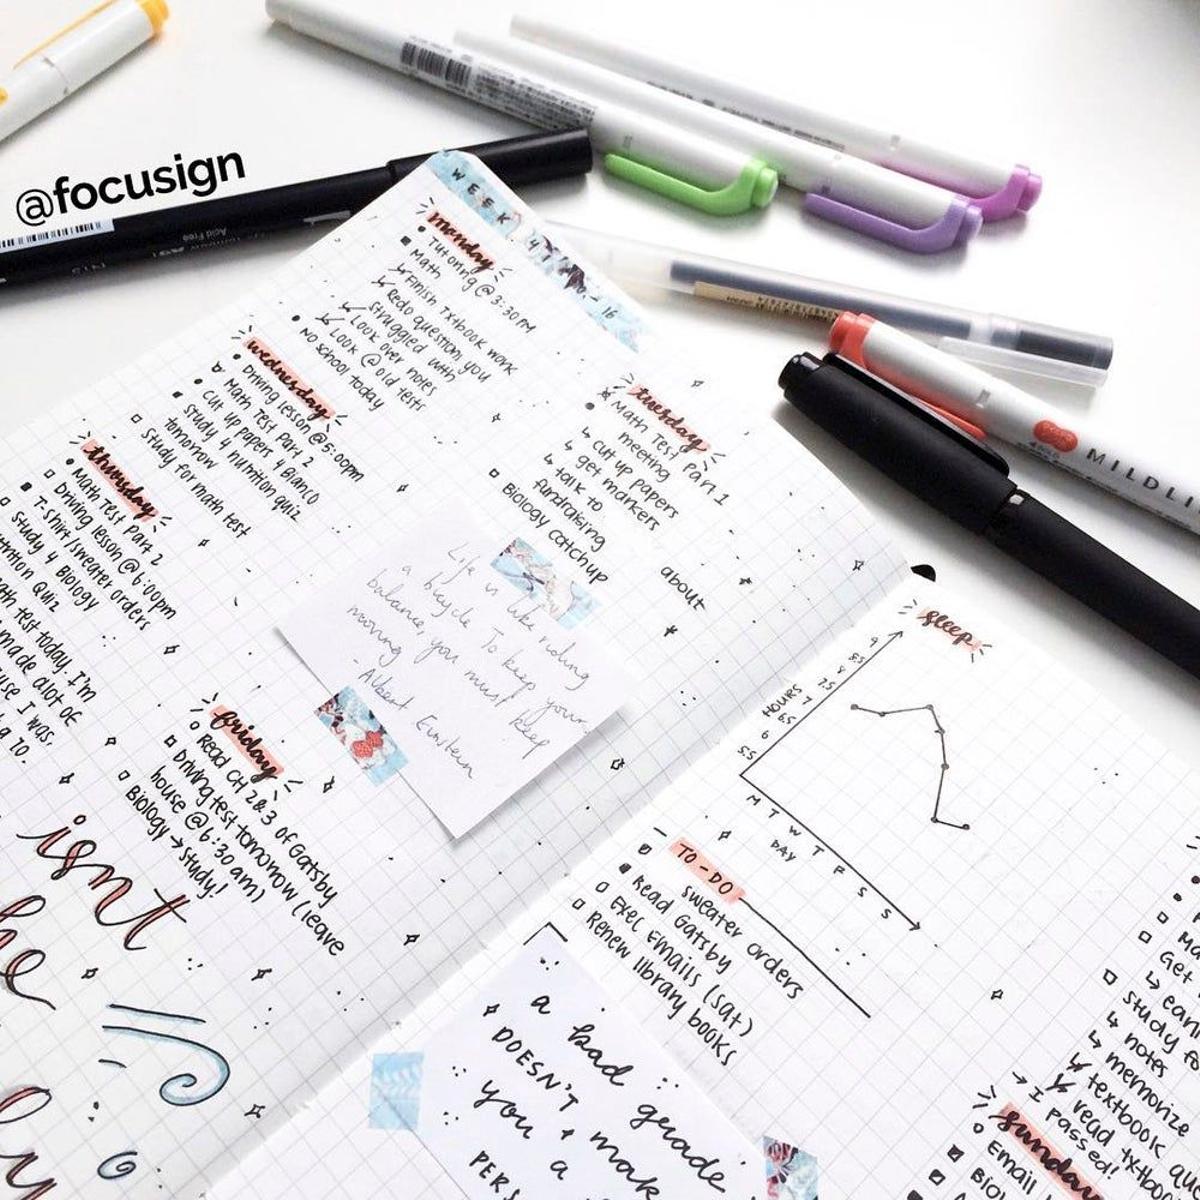 @focusign
Acid Free
N15
WEEK 4
16
monday
Tutoring @ 3:30PM
Math
Finish Txtbook work
Redo questions you
struggled with
Look over notes
Look @ old tests
No school today
tuesday
Math Test Part 1
meeting
↳ cut up papers
↳ get markers
↳ talk to
fundraising
Biology
catchup
about
wednesday
Driving lesson @ 5:00pm
Math Test Part 2
Cut up papers 4 Bianco
Study 4 nutrition quiz
tomorrow
Study for math test
thursday
Math Test Part 2
Driving lesson @ 6:00pm
T-shirt/sweater orders
Study 4 Biology
Quiz
test today. I'm
made alot of
I was.
To.
friday
Read CH 2&3 of Gatsby
Driving test tomorrow (leave
house @ 6:30 am)
Biology → study!
Life is like riding
a bicycle To keep your
balance, you must keep
moving
- Albert Einstein
isnt
sleep
HOURS
9
8.5
8
7.5
7
6.5
6
5.5
M T W T F S S
DAY
TO-DO
sweater orders
Read Gatsby
Exec Emails (sat)
Renew library books
a bad grade
DOESN'T + mak
you a
PERS
Get
Study fo
↳ notes
↳ memorize
textbook
read txtboo
→ I passed!
sunday
Email
MILDLI